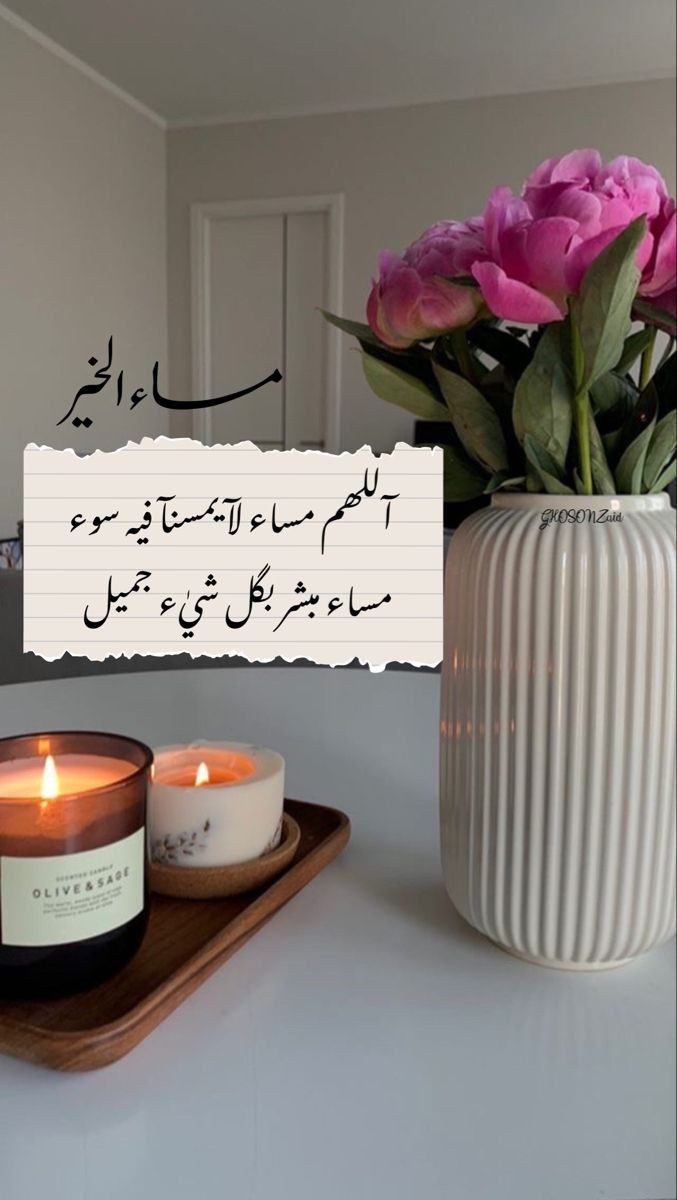 مساء الخير
آللهم مساء لآيمسنآ فيه سوء
مساء مبشر بگل شيٰء جميل
GHOSONZaid
SCENTED CANDLE
OLIVE & SAGE